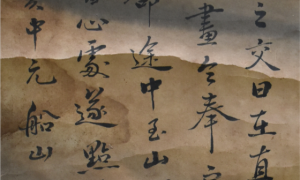 之交日在直
畫之奉
途中玉山
心處遂點
中元船山